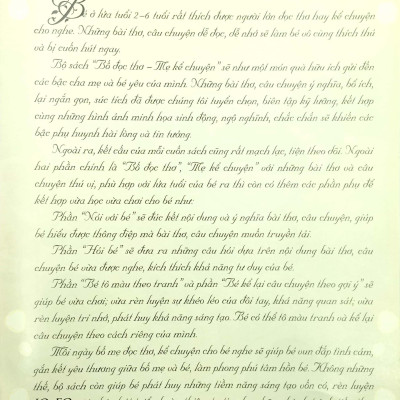 Bé ở lứa tuổi 2-6 tuổi rất thích được người lớn đọc thơ hay kể chuyện
cho nghe. Những bài thơ, câu chuyện dễ đọc, dễ nhớ sẽ làm bé vô cùng thích thú
và bị cuốn hút ngay.
Bộ sách "Bố đọc thơ - Mẹ kể chuyện" sẽ như một món quà hữu ích gửi đến
các bậc cha mẹ và bé yêu của mình. Những bài thơ, câu chuyện ý nghĩa, bổ ích,
lại ngắn gọn, súc tích đã được chúng tôi tuyển chọn, biên tập kỹ lưỡng, kết hợp
cùng những hình ảnh minh họa sinh động, ngộ nghĩnh, chắc chắn sẽ khiến các
bậc phụ huynh hài lòng và tin tưởng.
Ngoài ra, kết cấu của mỗi cuốn sách cũng rất mạch lạc, tiện theo dõi. Ngoài
hai phần chính là "Bố đọc thơ", "Mẹ kể chuyện" với những bài thơ và câu
chuyện thú vị, phù hợp với lứa tuổi của bé ra thì còn có thêm các phần phụ để
kết hợp vừa học vừa chơi cho bé như:
Phần "Nói với bé" sẽ đúc kết nội dung và ý nghĩa bài thơ, câu chuyện, giúp
bé hiểu được thông điệp mà bài thơ, câu chuyện muốn truyền tải.
Phần "Hỏi bé" sẽ đưa ra những câu hỏi dựa trên nội dung bài thơ, câu
chuyện bé vừa được nghe, kích thích khả năng tư duy của bé.
Phần "Bé tô màu theo tranh" và phần "Bé kể lại câu chuyện theo gợi ý" sẽ
giúp bé vừa chơi; vừa rèn luyện sự khéo léo của đôi tay, khả năng quan sát; vừa
rèn luyện trí nhớ, phát huy khả năng sáng tạo. Bé có thể tô màu tranh và kể lại
câu chuyện theo cách riêng của mình.
Mỗi ngày bố mẹ đọc thơ, kể chuyện cho bé nghe sẽ giúp bé vun đắp tình cảm,
gắn kết yêu thương giữa bố mẹ và bé, làm phong phú tâm hồn bé. Không những
thế, bộ sách còn giúp bé phát huy những tiềm năng sáng tạo vốn có, rèn luyện